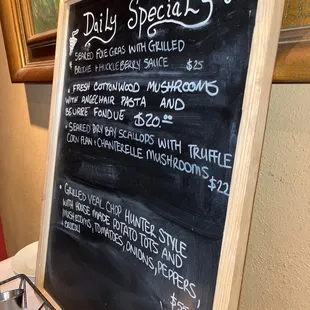 Daily Specials
SEARED FOIE GRAS WITH GRILLED
BRIOCHE & HUCKLEBERRY SAUCE $25
FRESH COTTONWOOD MUSHROOMS
WITH ANGELHAIR PASTA AND
BEURRE FONDUE $20.00
SEARED DIVER BAY SCALLOPS WITH TRUFFLE
CORN FLAN & CHANTERELLE MUSHROOMS
$22
GRILLED VEAL CHOP HUNTER STYLE
WITH HOUSE MADE POTATO TOTS AND
MUSHROOMS, TOMATOES, ONIONS, PEPPERS,